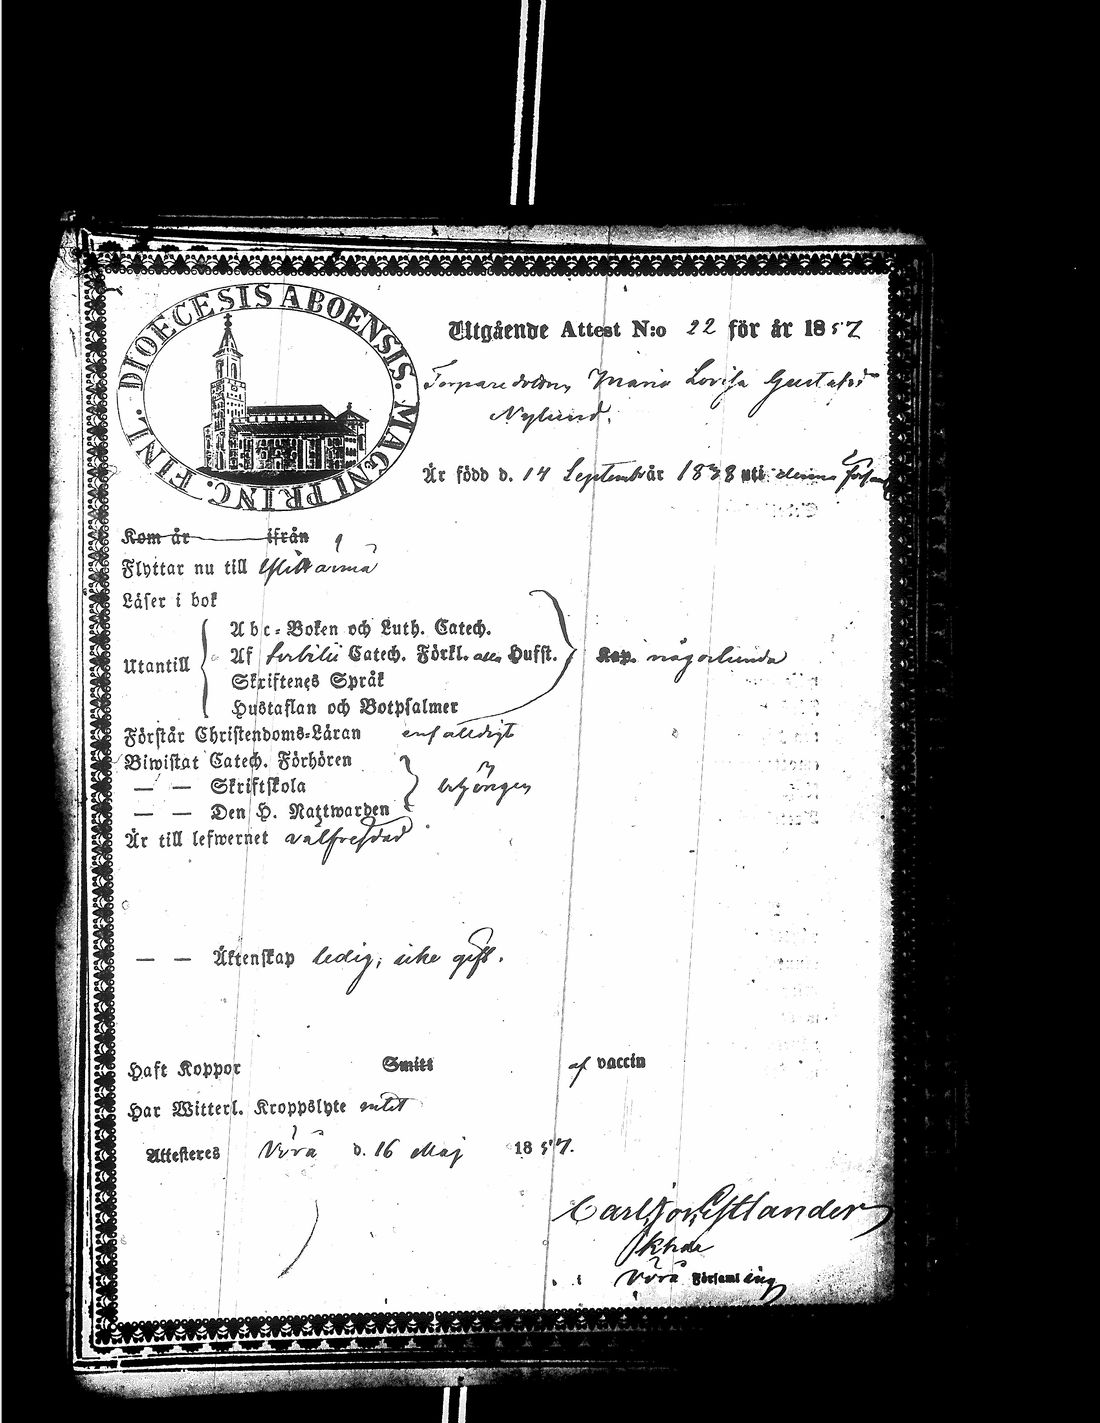 DIOECESIS ABOENSIS. MAGNI PRINC. FINL.
Utgående Attest N:o 22 för år 1857
Torparedottren Maria Lovisa Gustafsdr
Nylund.
Är född d. 14 September år 1838 uti denna Försam
Kom år ifrån
Flyttar nu till Ylistaro
Läser i bok
Abc-Boken och Luth. Catech.
Utantill Af Svebilii Catech. Förkl. Hufst. Kap. någorlunda
Skriftenes Språk
Hustaflan och Botpsalmer
Förstår Christendoms-Läran enfaldigt
Biwistat Catech. Förhören
— — Skriftskola behörigen
— — Den H. Nattwarden
Är till lefwernet välfrejdad
— — Äktenskap ledig; icke gift.
Haft Koppor Smitt af vaccin
Har Witterl. Kroppslyte intet
Attesteres Vörå d. 16 Maj 1857.
Carl Estlander
Vörå Församling